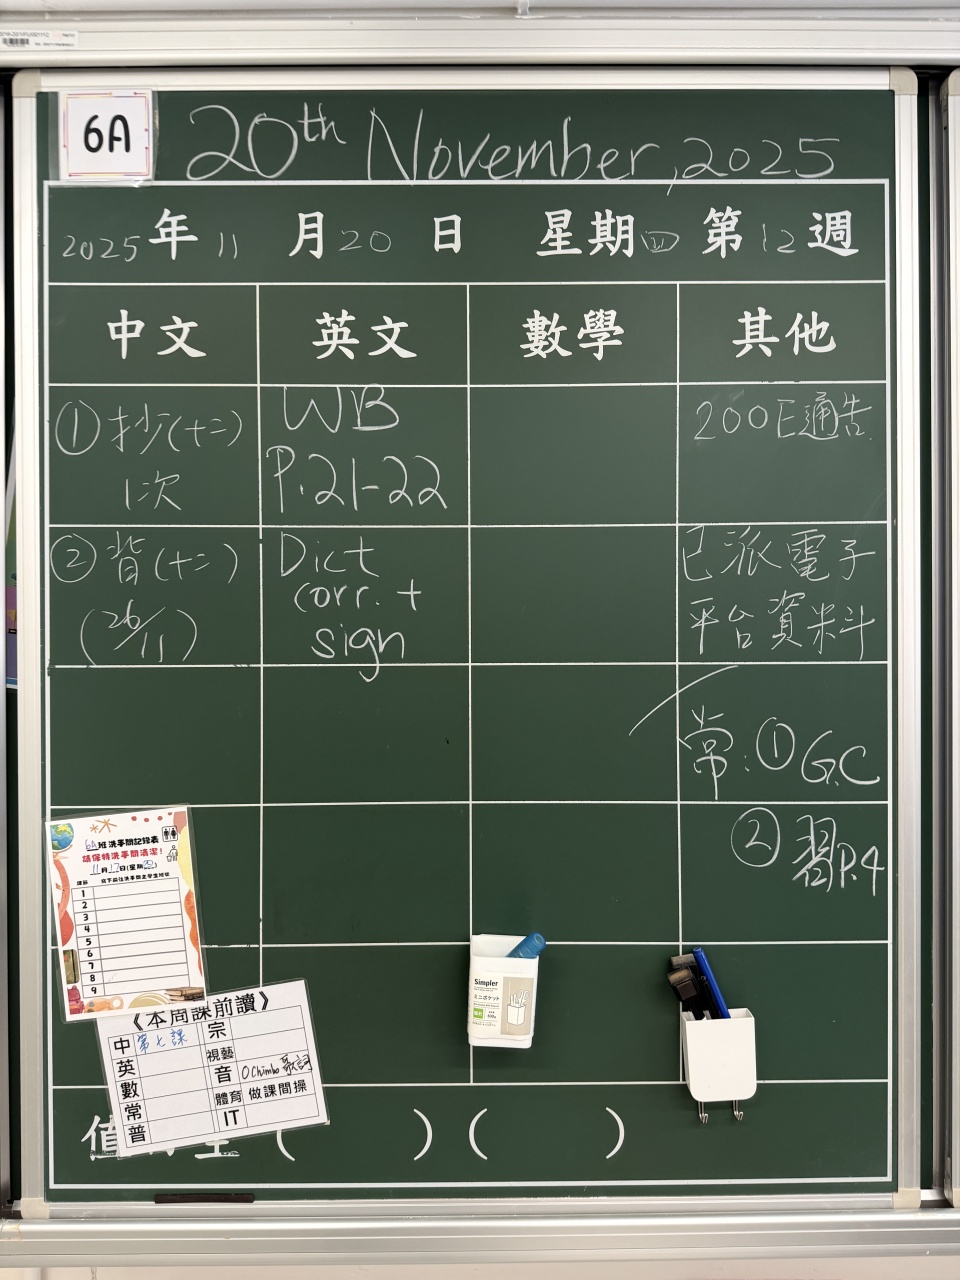 6A
20th November, 2025
2025年11月20日 星期四 第12週
中文 英文 數學 其他
①抄(十二)
1次
②背(十二)
(26/11)
WB
P.21-22
Dict
corr. +
sign
200E通告
已派電子
平台資料
常:①G.C
②習P.4
6A班洗手間記錄表
請保持洗手間清潔!
11月17日(星期
課節
1
2
3
4
5
6
7
8
9
《本周課前讀》
中 第七課 宗
英 視藝
數 音 Ochimbo歌詞
常 體育 做課間操
普 IT
值 生 ( ) ( )
Simpler
ミニポケット